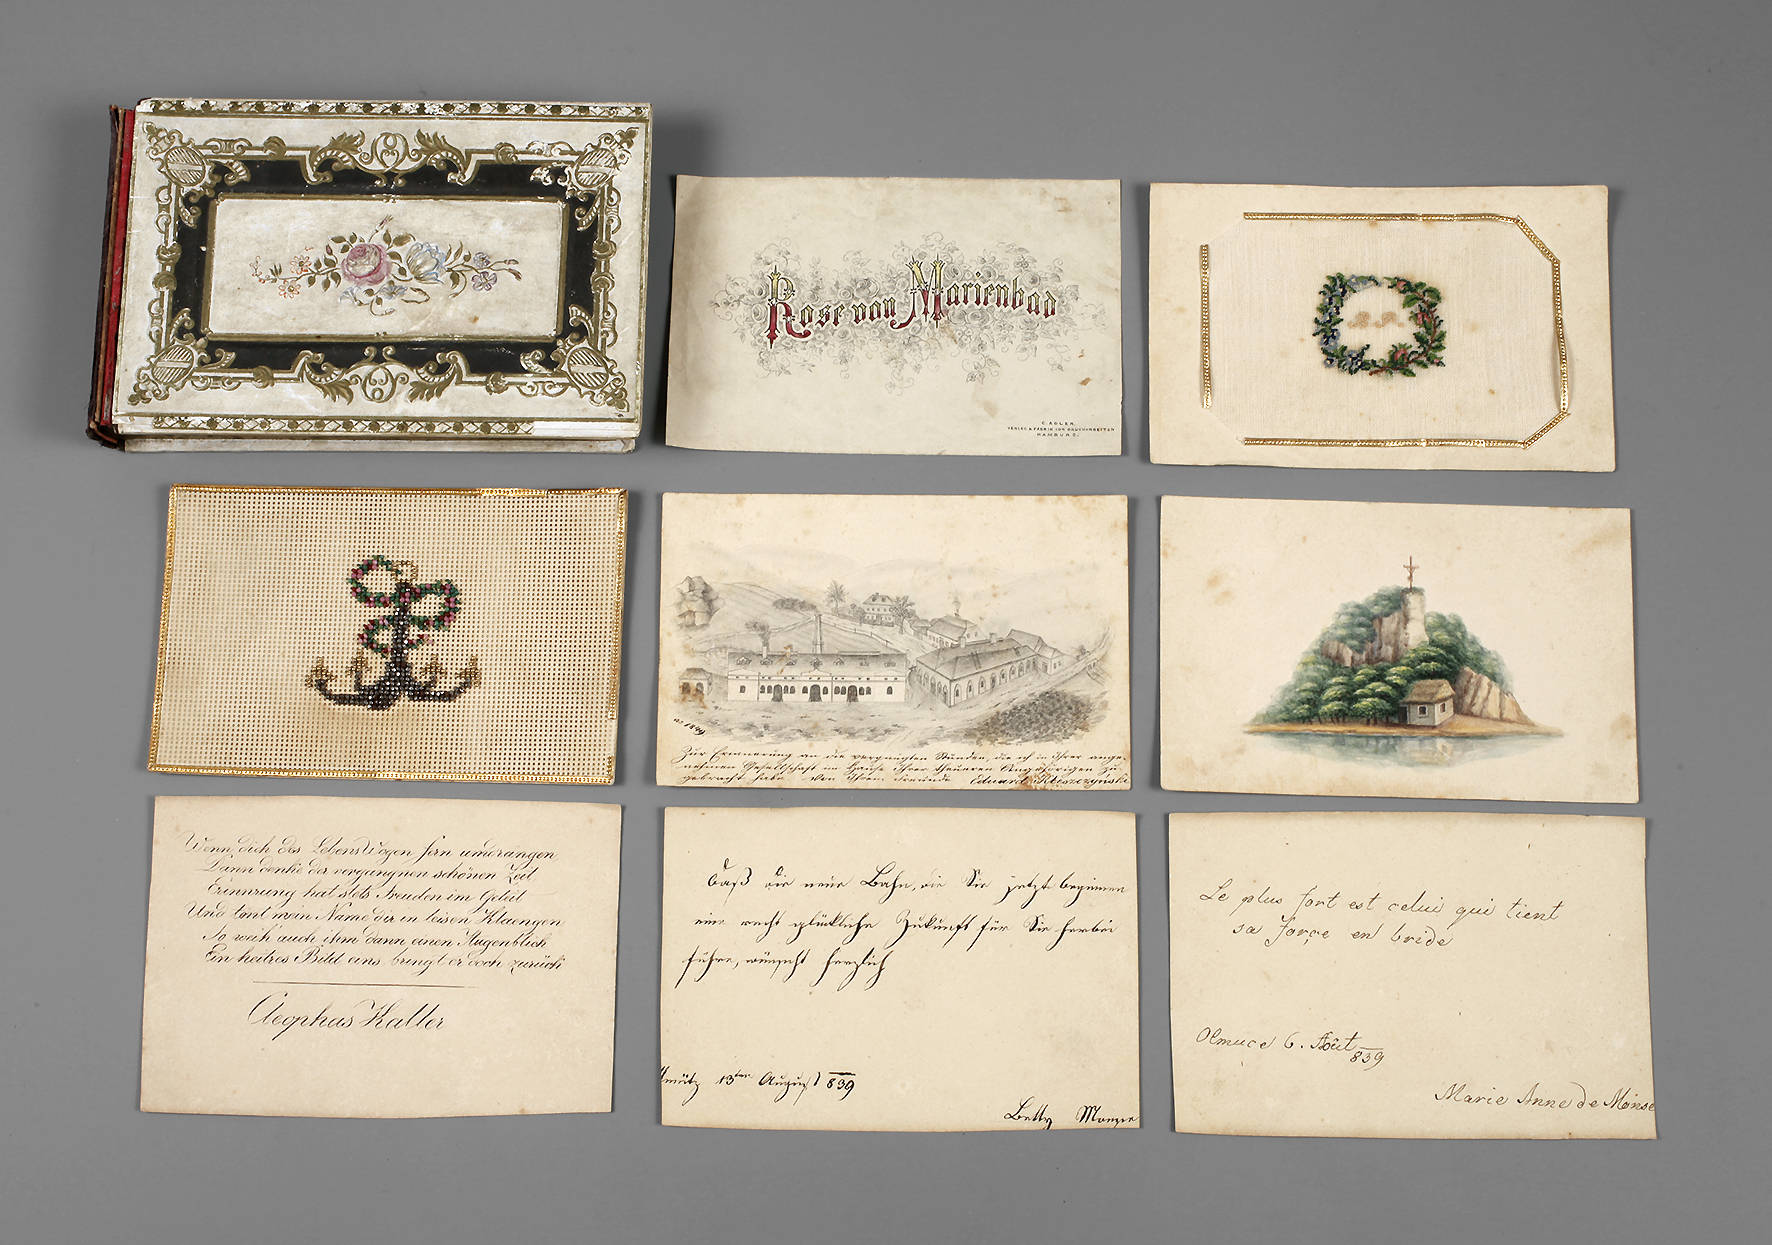 Rose von Marienbad
C. ADLER.
HAMBURG.
a: 1849
Zur Erinnerung an die vergnügten Stunden, die ich in Ihrer ange-
nehmen Gesellschaft im Hause Ihrer theuern Angehörigen zu-
gebracht habe. Von Ihrem Freunde Eduard
Wenn dich des Lebens Wogen fern umdrangen
Dann denke der vergangnen schönen Zeit
Erinnrung hat stets Freuden im Geleit
Und tönt mein Name dir in leisen Klaengen
So weih' auch ihm dann einen Augenblick
Ein heitres Bild eins bringt er doch zurück
Cleophas Kaller
Daß die neue Bahn, die Sie jetzt beginnen
eine recht glückliche Zukunft für Sie herbei
führe, wünscht herzlich
lmütz 13ten August 839
Betty
Le plus fort est celui qui tient
sa forçe en bride
Olmuce 6. Août 839
Marie Anne de Monse